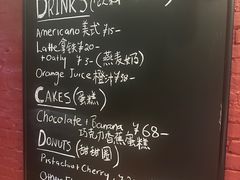 DRINKS (饮料
Americano 美式 ¥15-
Latte 拿铁 ¥20-
+Oatly ¥3-(燕麦奶)
Orange Juice 橙汁 ¥38-
CAKES (蛋糕)
Chocolate + Banana ¥68-
巧克力香蕉蛋糕
DONUTS (甜甜圈)
Pistachio + Cherry
Other